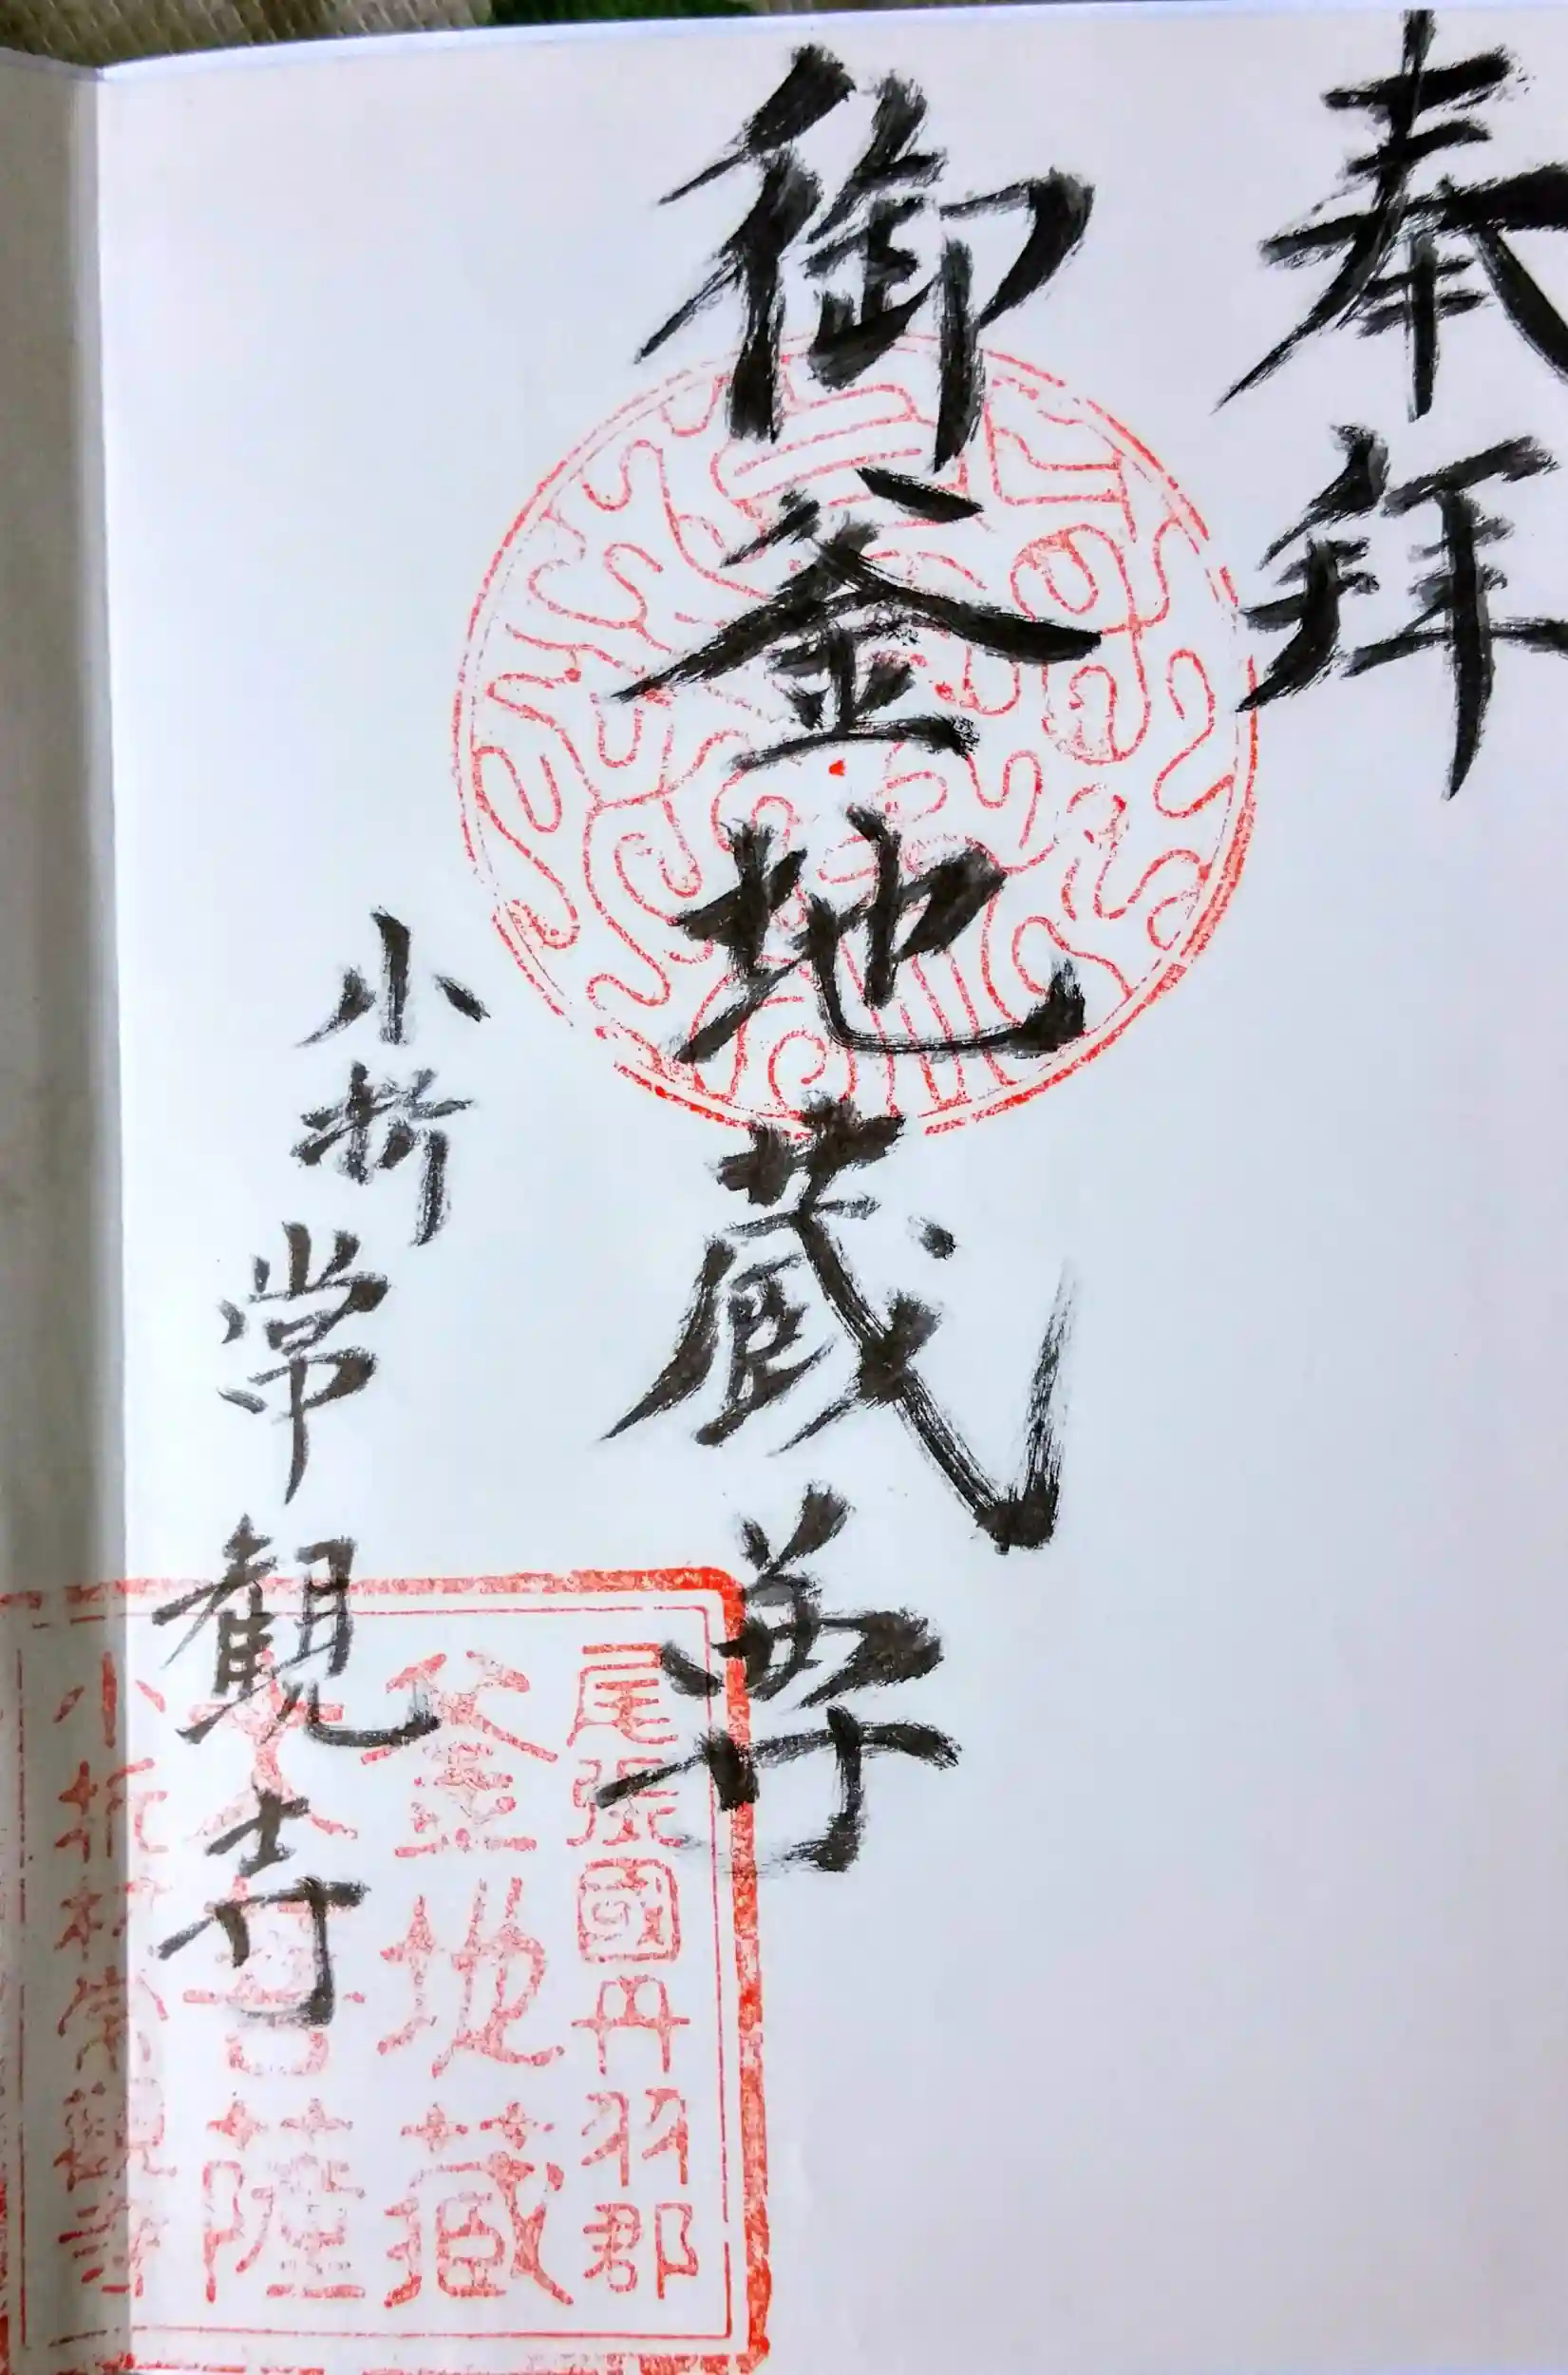 奉拜
御釜地蔵尊
小折常観寺
尾張國丹羽郡
釜地藏
大菩薩
小折村常観寺